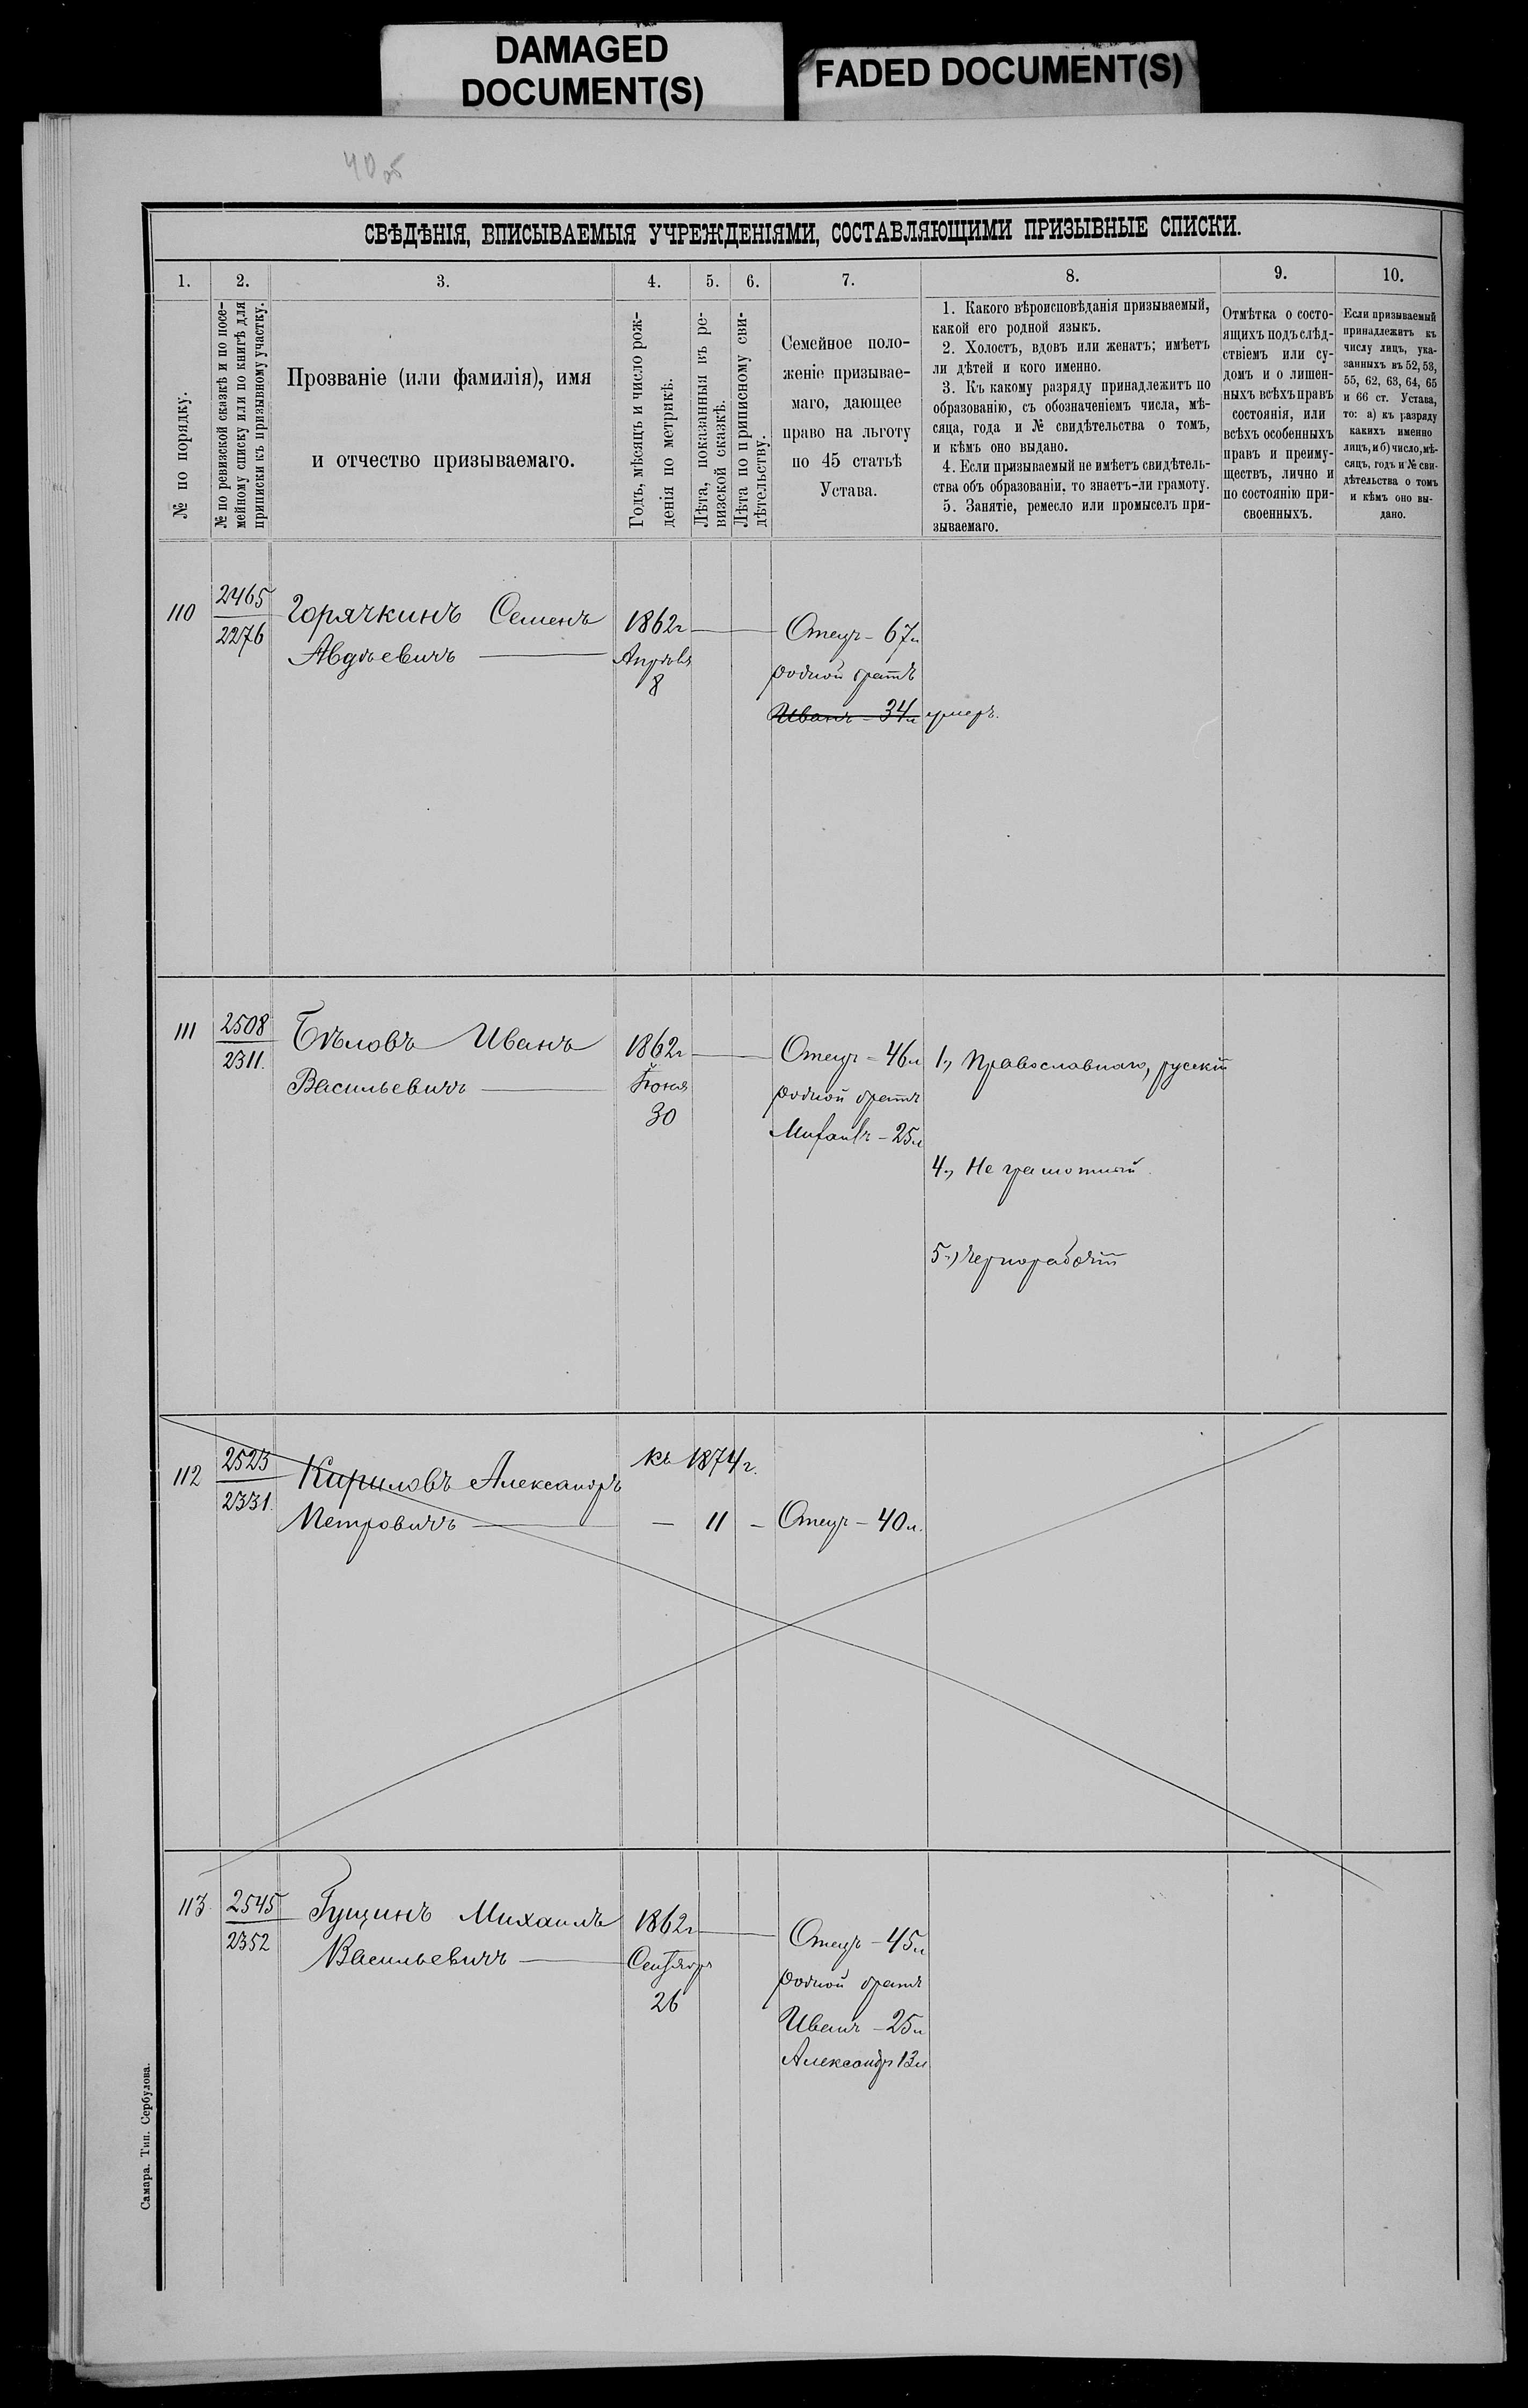 DAMAGED
DOCUMENT(S)
FADED DOCUMENT(S)
40 об
СВѢДѢНІЯ, ВПИСЫВАЕМЫЯ УЧРЕЖДЕНІЯМИ, СОСТАВЛЯЮЩИМИ ПРИЗЫВНЫЕ СПИСКИ.
1. 2. 3. 4. 5. 6. 7. 8. 9. 10.
№ по порядку.
№ по ревизской сказкѣ и по посе-
мейному списку или по книгѣ для
приписки къ призывному участку.
Прозваніе (или фамилія), имя
и отчество призываемаго.
Годъ, мѣсяцъ и число рож-
денія по метрикѣ.
Лѣта, показанныя въ ре-
визской сказкѣ.
Лѣта по приписному сви-
дѣтельству.
Семейное поло-
женіе призывае-
маго, дающее
право на льготу
по 45 статьѣ
Устава.
1. Какого вѣроисповѣданія призываемый,
какой его родной языкъ.
2. Холостъ, вдовъ или женатъ; имѣетъ
ли дѣтей и кого именно.
3. Къ какому разряду принадлежитъ по
образованію, съ обозначеніемъ числа, мѣ-
сяца, года и № свидѣтельства о томъ,
и кѣмъ оно выдано.
4. Если призываемый не имѣетъ свидѣтель-
ства объ образованіи, то знаетъ-ли грамоту.
5. Занятіе, ремесло или промыселъ при-
зываемаго.
Отмѣтка о состо-
ящихъ подъ слѣд-
ствіемъ или су-
домъ и о лишен-
ныхъ всѣхъ правъ
состоянія, или
всѣхъ особенныхъ
правъ и преиму-
ществъ, лично и
по состоянію при-
своенныхъ.
Если призываемый
принадлежитъ къ
числу лицъ, ука-
занныхъ въ 52, 53,
55, 62, 63, 64, 65
и 66 ст. Устава,
то: а) къ разряду
какихъ именно
лицъ, и б) число, мѣ-
сяцъ, годъ и № сви-
дѣтельства о томъ
и кѣмъ оно вы-
дано.
110
2465
2276
Горячкинъ Семенъ
Авдѣевичъ
1862г
Апрѣля
8
Отецъ - 67л
родной братъ
Иванъ - 34л умеръ.
111
2508
2311.
Бѣловъ Иванъ
Васильевичъ
1862г
Іюня
30
Отецъ - 46л
родной братъ
Михаилъ - 25л
1, Православнаго, русскій
4, Не грамотный
5,) Чернорабочій
112
2523
2331.
Кириловъ Александръ
Петровичъ
къ 1874г.
— 11 —
Отецъ - 40л.
113
2545
2352
Гущинъ Михаилъ
Васильевичъ
1862г
Сентября
26
Отецъ - 45л
родной братъ
Иванъ - 25л
Александръ 13л
Самара. Тип. Сербулова.